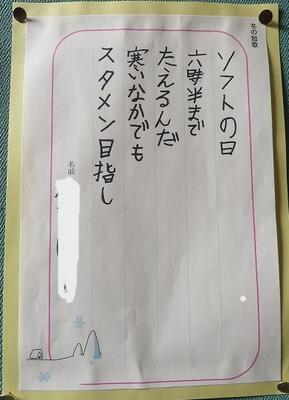 冬の短歌
ソフトの日
六時半まで
たえるんだ
寒いなかでも
スタメン目指し
名前